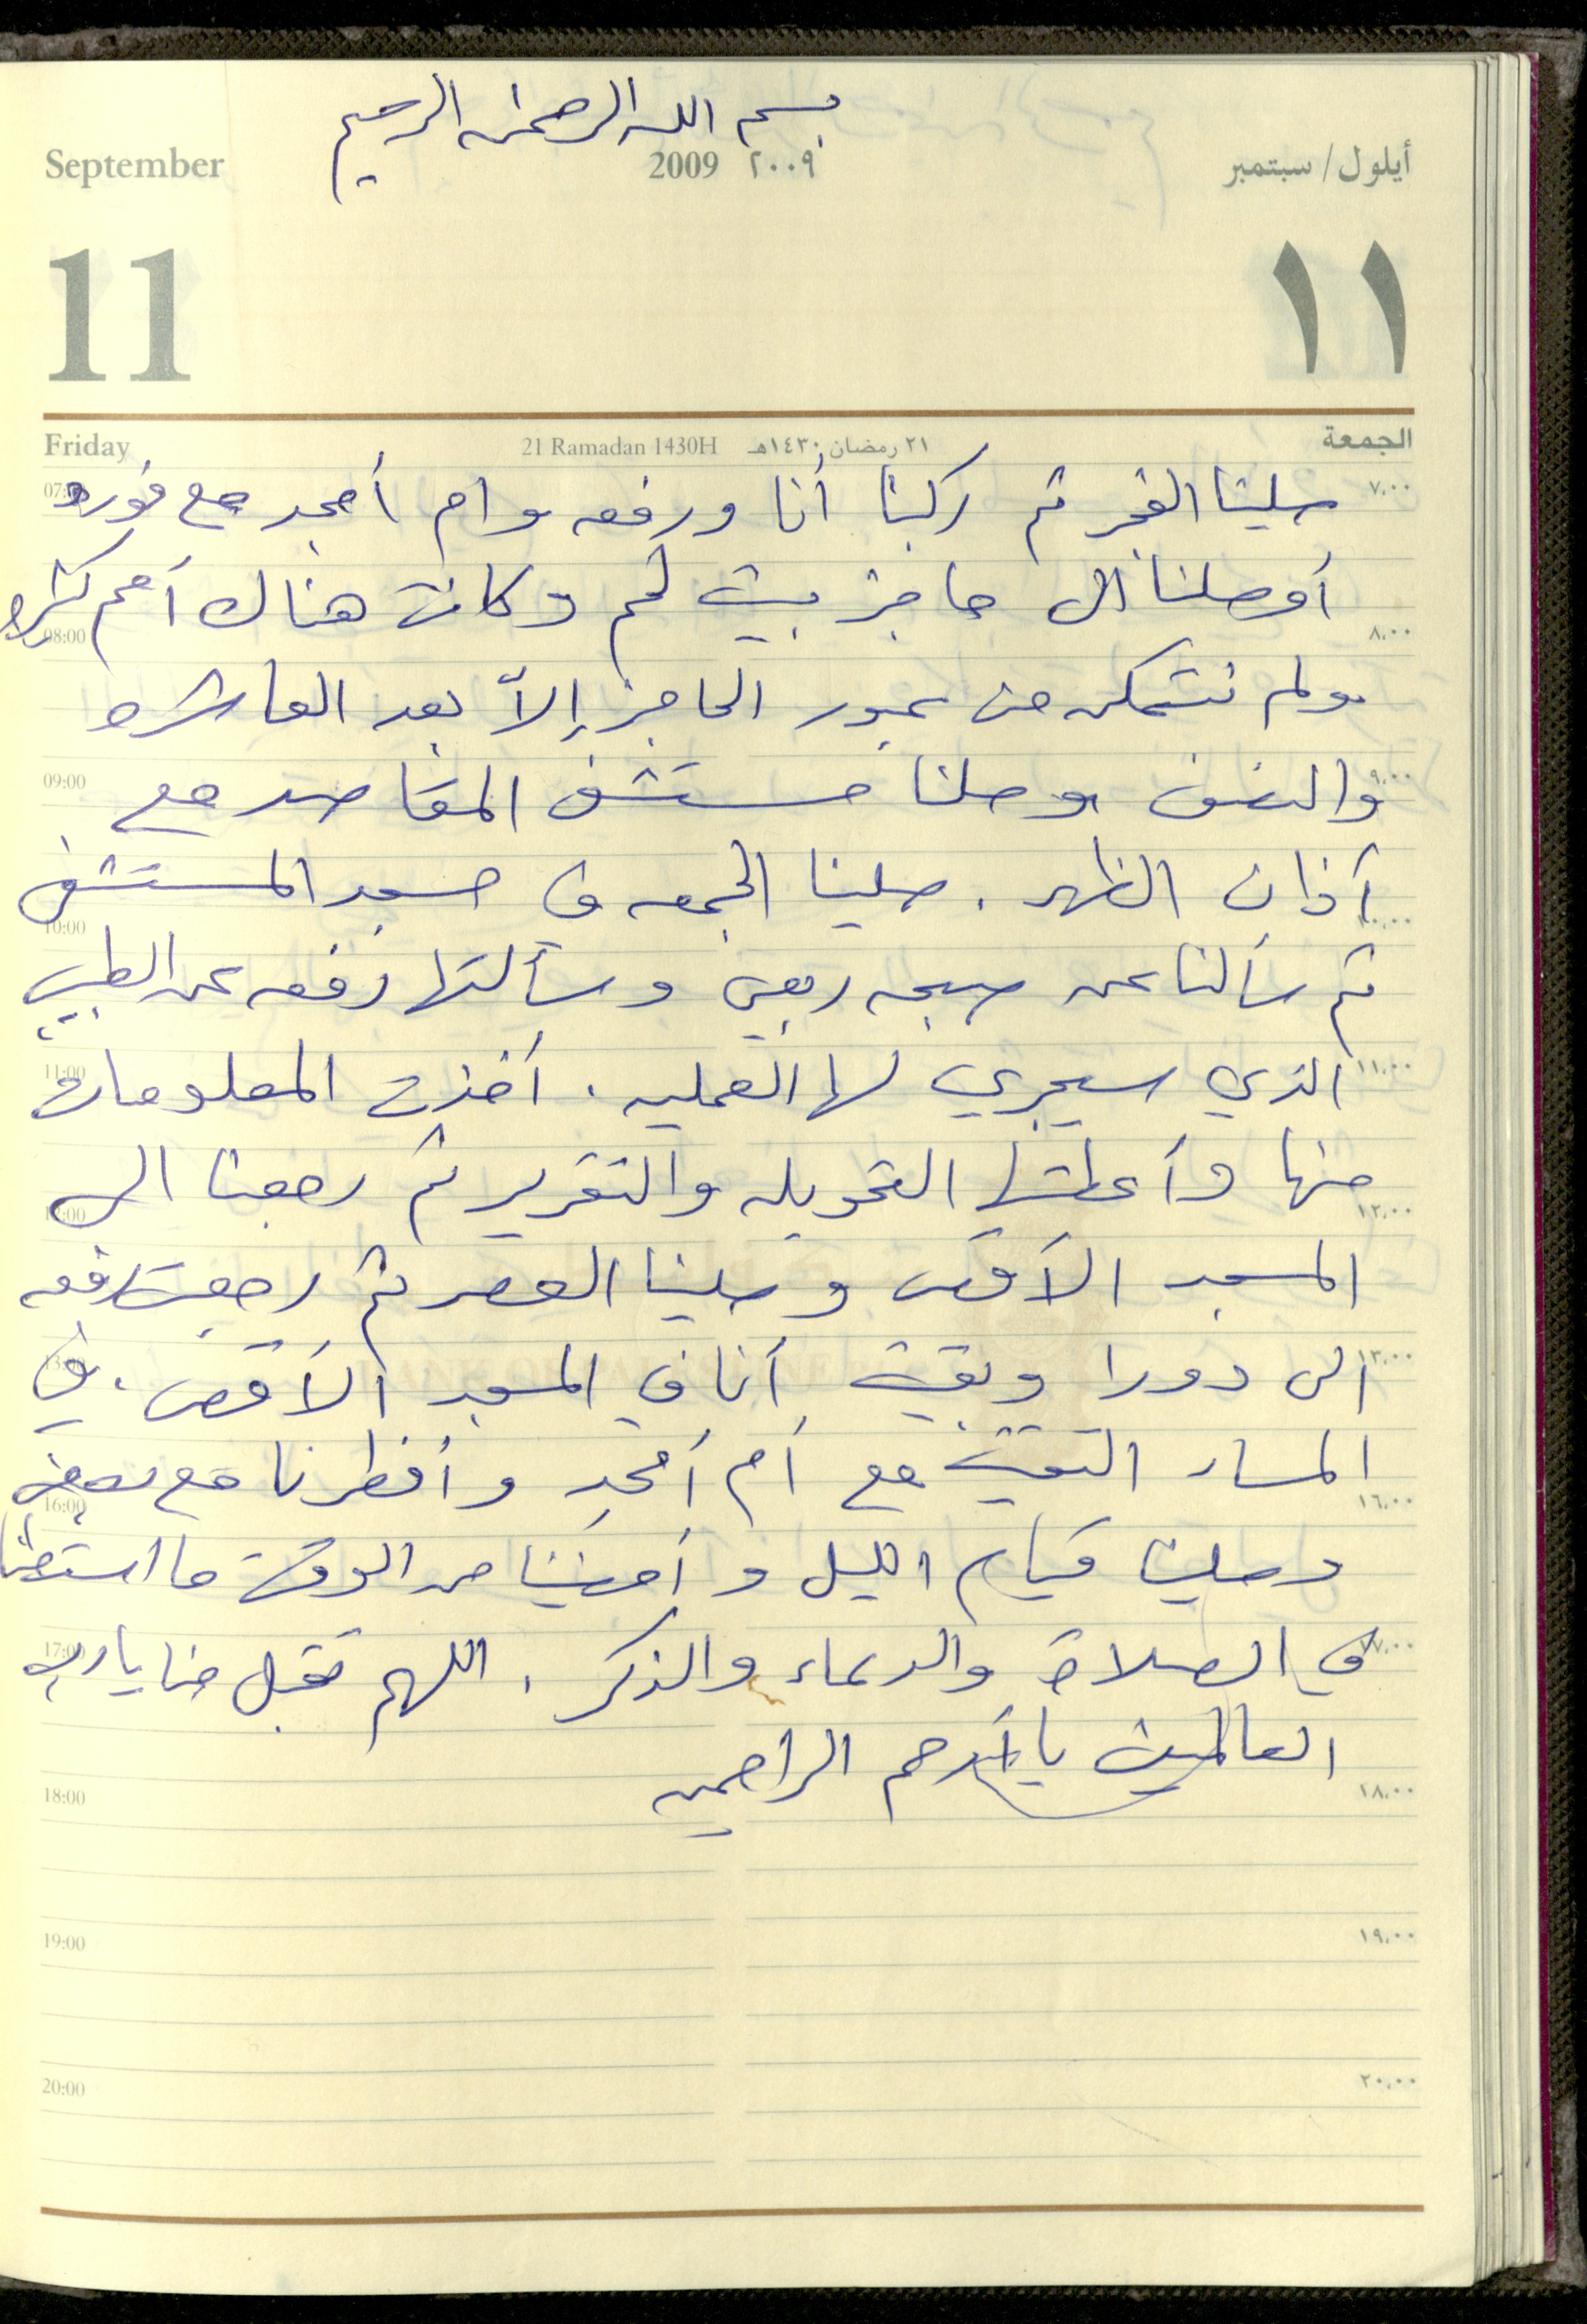 بسم الله الرحمن الرحيم
September 2009 ٢٠٠٩ أيلول/سبتمبر
11 ١١
Friday 21 Ramadan 1430H ٢١ رمضان ١٤٣٠هـ الجمعة
07:00 صلينا الفجر ثم ركبنا أنا ورفعه وام أمجد مع فوره ٧،٠٠
أوصلنا الى حاجز بيت لحم وكانت هناك أمم كثيره
08:00 ٨،٠٠
ولم نتمكن من عبور الحاجز إلاّ بعد العاشره
09:00 والنصف وصلنا مستشفى المقاصد مع ٩،٠٠
آذان الظهر . صلينا الجمعه في مسجد المستشفى
10:00 ١٠،٠٠
ثم سألنا عن صبحه ربعي وسألتها رفعه عن الطبيب
11:00 الذي سيجري لها العمليه . أخذت المعلومات ١١،٠٠
منها وأعطتها التحويله والتقرير ثم رجعنا الى
12:00 ١٢،٠٠
المسجد الأقصى وصلينا العصر ثم رجعت رفعه
13:00 الى دورا وبقيت أنا في المسجد الأقصى . في ١٣،٠٠
BANK OF PALESTINE
المساء التقيت مع أم أمجد وأفطرنا مع بعض
16:00 ١٦،٠٠
وصلينا قيام الليل وأمضينا من الوقت ما استطعنا
17:00 في الصلاة والدعاء والذكر . اللهم تقبل منا يا رب ١٧،٠٠
العالمين يا أرحم الراحمين
18:00 ١٨،٠٠
19:00 ١٩،٠٠
20:00 ٢٠،٠٠